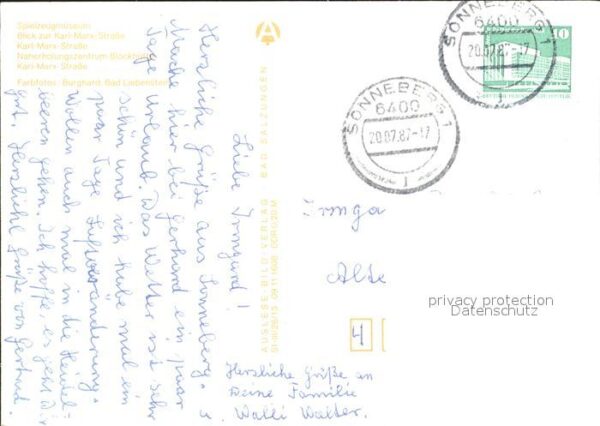 Spielzeugmuseum
Blick zur Karl-Marx-Straße
Karl-Marx-Straße
Naherholungszentrum Blockhütte
Karl-Marx-Straße
Farbfotos: Burghard, Bad Liebenstein
AUSLESE-BILD-VERLAG BAD SALZUNGEN
Liebe Irmgard!
Herzliche Grüße aus Sonneberg.
Mache hier bei Gerhard ein paar
Tage Urlaub. Das Wetter ist sehr
schön und ich habe mal ein
paar Tage Luftveränderung.
Wollen auch mal in die Heidel-
beeren gehen. Ich hoffe, es geht Dir
gut. Herzliche Grüße von Gertrud.
Herzliche Grüße an
Deine Familie
u. Walli Walter.
SONNEBERG 1
6400
20.07.87-17
SONNEBERG 1
6400
20.07.87-17
10
Irmga
Alte
4
privacy protection
Datenschutz